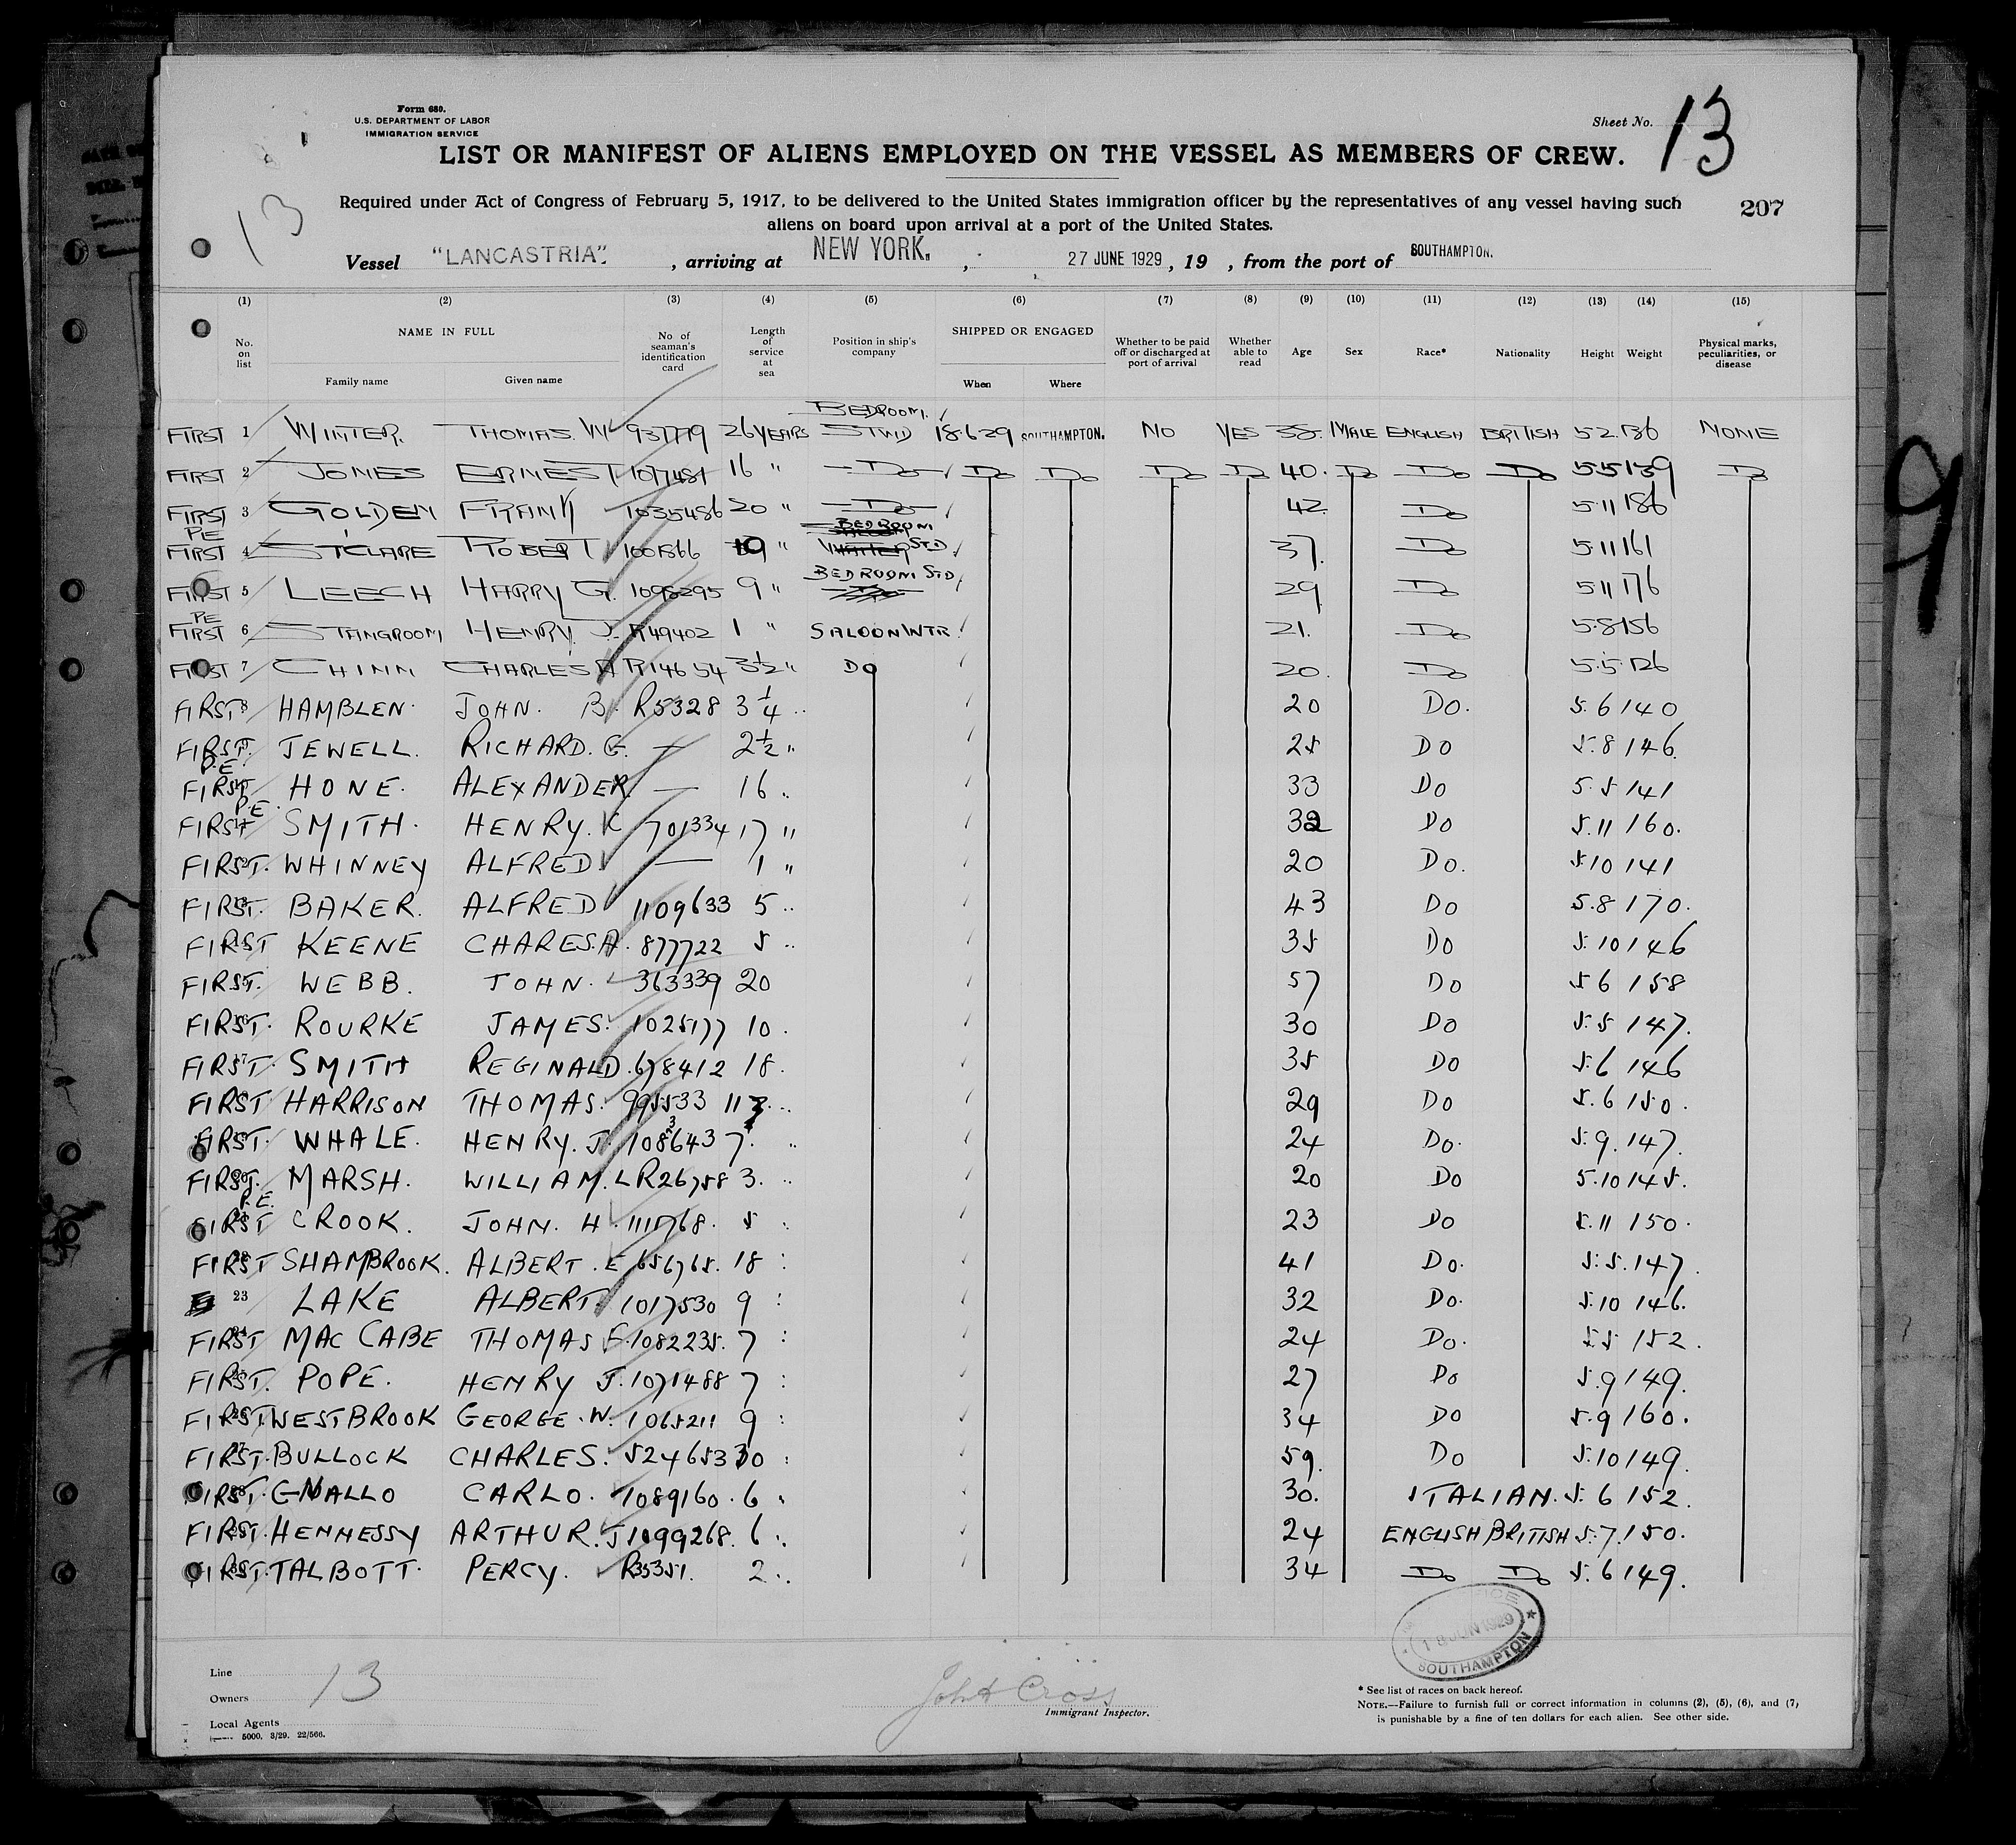 Form 680.
U.S. DEPARTMENT OF LABOR
IMMIGRATION SERVICE
Sheet No. 13
LIST OR MANIFEST OF ALIENS EMPLOYED ON THE VESSEL AS MEMBERS OF CREW.
13
Required under Act of Congress of February 5, 1917, to be delivered to the United States immigration officer by the representatives of any vessel having such
aliens on board upon arrival at a port of the United States.
207
Vessel "LANCASTRIA", arriving at NEW YORK, 27 JUNE 1929, 19 , from the port of SOUTHAMPTON.
(1) (2) (3) (4) (5) (6) (7) (8) (9) (10) (11) (12) (13) (14) (15)
No. on list NAME IN FULL Family name Given name No. of seaman's identification card Length of service at sea Position in ship's company SHIPPED OR ENGAGED When Where Whether to be paid off or discharged at port of arrival Whether able to read Age Sex Race* Nationality Height Weight Physical marks, peculiarities, or disease
BEDROOM
FIRST 1 WINTER. THOMAS. W 937779 26 YEARS STWD 18.6.29 SOUTHAMPTON. NO YES 38. MALE ENGLISH BRITISH 5.2. 136 NONE
FIRST 2 JONES ERNEST 1077484 16 " Do Do Do Do Do 40. Do Do Do 5.5 139 Do
FIRST 3 GOLDEN FRANK 1035486 20 " Do 42. Do 5.11 186
PE BEDROOM
FIRST 4 ST CLARE ROBERT 19 " STD 37. Do 5.11 161
BEDROOM STD
FIRST 5 LEECH HARRY G. 1098295 9 " 29 Do 5.11 176
PE
FIRST 6 STANGROOM HENRY. J. R49402 1 " SALOON WTR. 21. Do 5.8 156
FIRST 7 CHINN CHARLES A R14654 3½ " DO 20. Do 5.5. 126
FIRST 8 HAMBLEN. JOHN. B. R5328 3¼ " 20 DO. 5.6 140
FIRST. JEWELL. RICHARD. G. — 2½ " 25 DO 5.8 146.
P.E.
FIRST HONE. ALEXANDER. — 16 " 33 DO 5.5 141
P.E.
FIRST SMITH. HENRY. K 701334 17 " 32 DO 5.11 160.
FIRST. WHINNEY ALFRED — 1 " 20 DO. 5.10 141
FIRST. BAKER. ALFRED 1109633 5 " 43 DO 5.8 170.
FIRST KEENE CHARES.A. 877722 5 " 35 DO 5.10 146
FIRST. WEBB. JOHN. 363339 20 57 DO 5 6 158
FIRST. ROURKE JAMES. 1025177 10. 30 DO 5.5 147.
FIRST. 17 SMITH REGINALD. 678412 18. 35 DO 5.6 146
FIRST HARRISON THOMAS. 995533 11 29 DO 5.6 150.
FIRST. WHALE. HENRY. J. 7. " 24 DO. 5.9. 147.
FIRST. MARSH. WILLIAM. L R26758 3. " 20 DO 5.10 145.
P.E.
FIRST CROOK. JOHN. H. 5 " 23 DO 5.11 150.
FIRST SHAMBROOK. ALBERT. E 656765. 18 " 41 DO. 5.5. 147.
23 LAKE ALBERT. 1017530 9 " 32 DO. 5.10 146.
FIRST MAC CABE THOMAS 1082235. 7 " 24 DO. 5.5 152.
FIRST. POPE. HENRY J. 1071488 7 " 27 DO 5.9 149.
FIRST WESTBROOK GEORGE. W. 1065211 9 " 34 DO 5.9 160.
FIRST. BULLOCK CHARLES. 524653 30 " 59. DO 5.10 149.
FIRST. CARLO. 1089160. 6 " 30. ITALIAN. 5.6 152.
FIRST. HENNESSY ARTHUR. J 1099268. 6 " 24 ENGLISH BRITISH 5.7. 150.
FIRST. TALBOTT. PERCY. R35351. 2 " 34 Do Do 5.6 149.
18 JUN 1929
SOUTHAMPTON
Line
Owners 13
Local Agents
5000. 3/29. 22/566.
John Cross
Immigrant Inspector.
* See list of races on back hereof.
NOTE.—Failure to furnish full or correct information in columns (2), (5), (6), and (7,
is punishable by a fine of ten dollars for each alien. See other side.
9